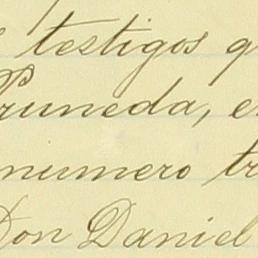 testigos q
Pruneda, e
numero tr
Don Daniel